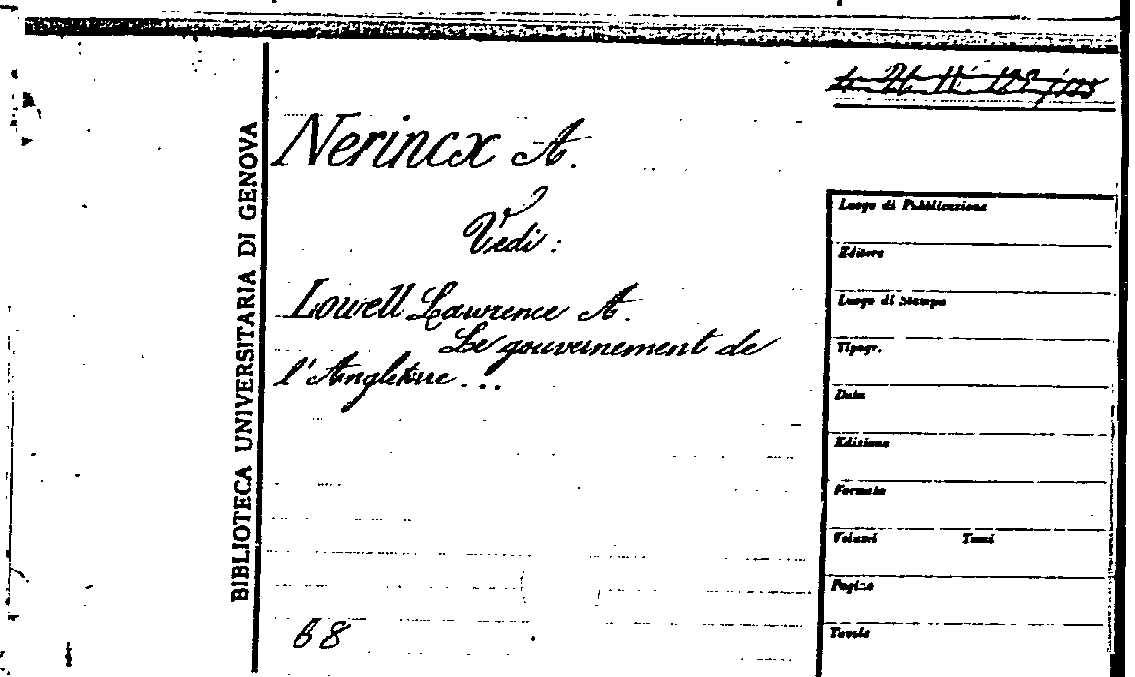 BIBLIOTECA UNIVERSITARIA DI GENOVA
Nerincx A.
Vedi :
Lowell Lawrence A.
Le gouvernement de
l'Angleterre ...
68
Luogo di Pubblicazione
Editore
Luogo di Stampa
Tipogr.
Data
Edizione
Formato
Volumi Tomi
Pagine
Tavole